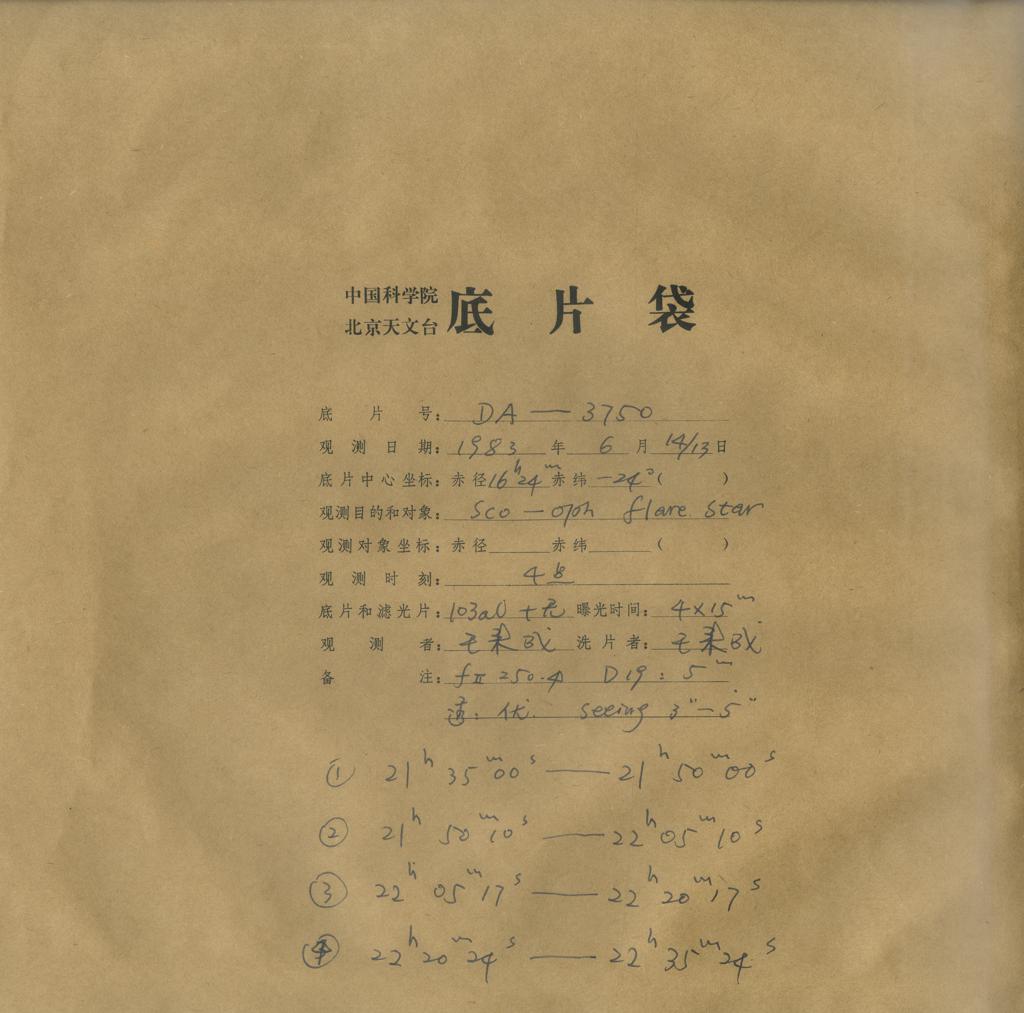 中国科学院
北京天文台
底片袋
底片号: DA — 3750
观测日期: 1983 年 6 月 14/13 日
底片中心坐标: 赤径 16ʰ24ᵐ 赤纬 -24° ( )
观测目的和对象: Sco — oph flare star
观测对象坐标: 赤径 赤纬 ( )
观测时刻: 4
底片和滤光片: 103aO + 无 曝光时间: 4×15ᵐ
观测者: 洗片者:
备注: fⅡ 250.4 D19: 5ᵐ
优. seeing 3"—5"
① 21ʰ 35ᵐ 00ˢ — 21ʰ 50ᵐ 00ˢ
② 21ʰ 50ᵐ 10ˢ — 22ʰ 05ᵐ 10ˢ
③ 22ʰ 05ᵐ 17ˢ — 22ʰ 20ᵐ 17ˢ
④ 22ʰ 20ᵐ 24ˢ — 22ʰ 35ᵐ 24ˢ